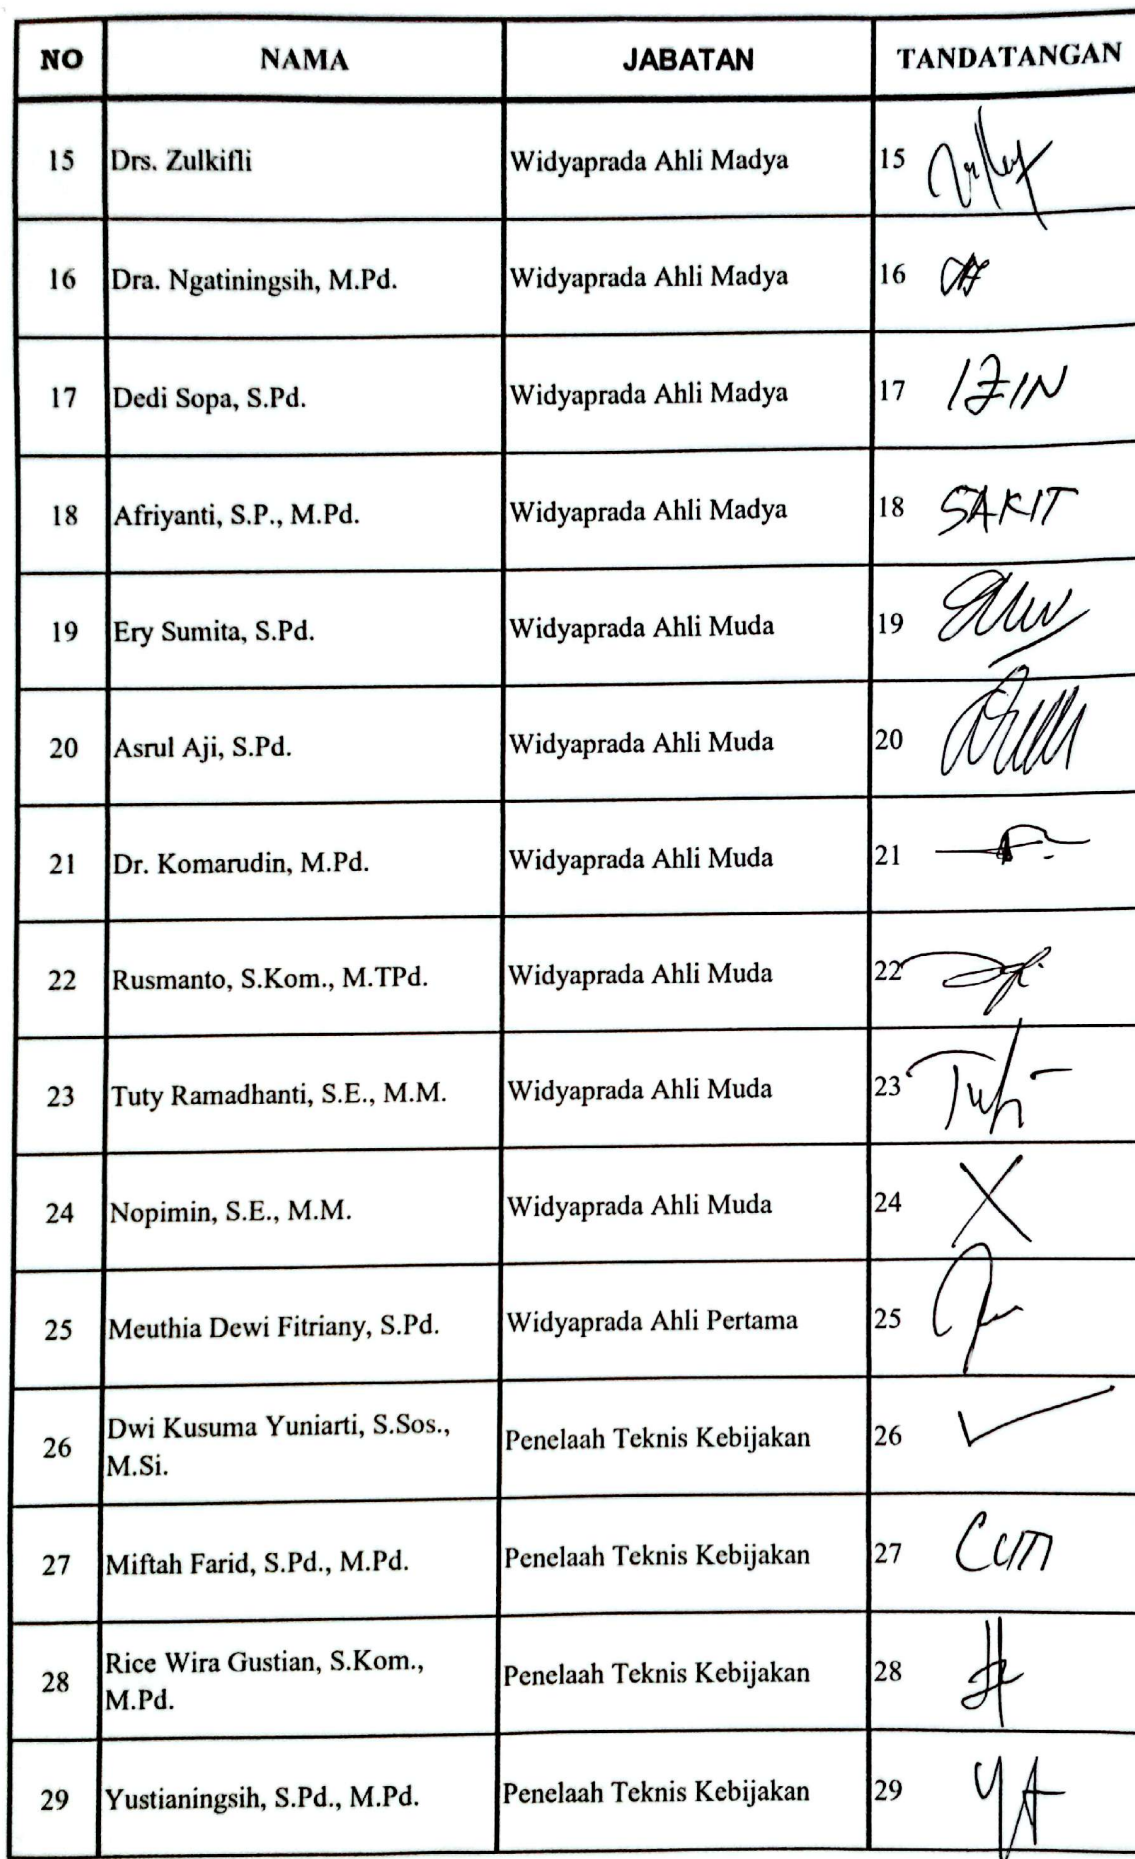 NO NAMA JABATAN TANDATANGAN
15 Drs. Zulkifli Widyaprada Ahli Madya 15
16 Dra. Ngatiningsih, M.Pd. Widyaprada Ahli Madya 16
17 Dedi Sopa, S.Pd. Widyaprada Ahli Madya 17 IZIN
18 Afriyanti, S.P., M.Pd. Widyaprada Ahli Madya 18 SAKIT
19 Ery Sumita, S.Pd. Widyaprada Ahli Muda 19
20 Asrul Aji, S.Pd. Widyaprada Ahli Muda 20
21 Dr. Komarudin, M.Pd. Widyaprada Ahli Muda 21
22 Rusmanto, S.Kom., M.TPd. Widyaprada Ahli Muda 22
23 Tuty Ramadhanti, S.E., M.M. Widyaprada Ahli Muda 23
24 Nopimin, S.E., M.M. Widyaprada Ahli Muda 24
25 Meuthia Dewi Fitriany, S.Pd. Widyaprada Ahli Pertama 25
26 Dwi Kusuma Yuniarti, S.Sos., Penelaah Teknis Kebijakan 26
M.Si.
27 Miftah Farid, S.Pd., M.Pd. Penelaah Teknis Kebijakan 27
28 Rice Wira Gustian, S.Kom., Penelaah Teknis Kebijakan 28
M.Pd.
29 Yustianingsih, S.Pd., M.Pd. Penelaah Teknis Kebijakan 29